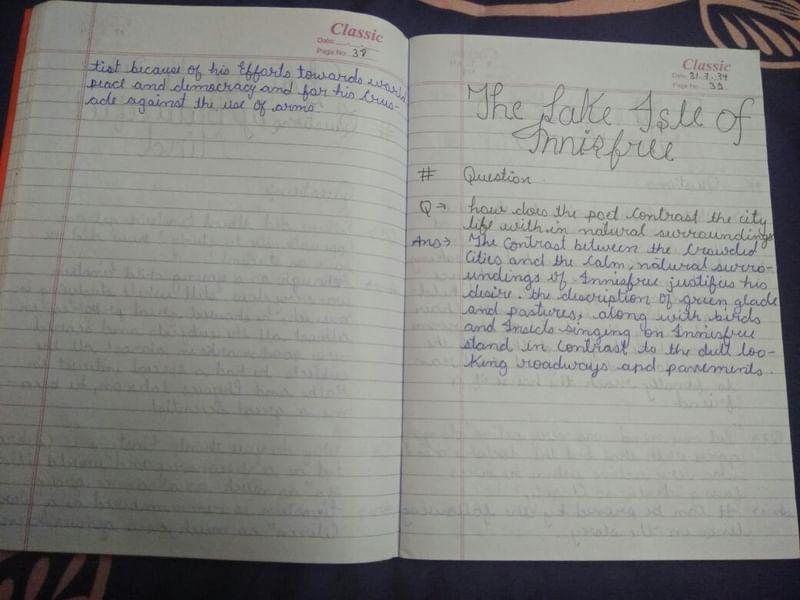 Classic
Date:
Page No: 38
tist because of his Efforts towards world
peace and democracy and for his Crus-
ade against the use of arms
Classic
Date 31.7.24
Page No 39
The Lake Isle of
Innisfree
# Question
Q→ how does the poet Contrast the city
life with in natural surroundings
Ans→ The Contrast between the Crowded
Cities and the Calm, natural surro-
undings of Innisfree justifies his
desire. the description of green glade
and pastures, along with birds
and Insects singing on Innisfree
stand in Contrast to the dull loo-
king roadways and pavements.